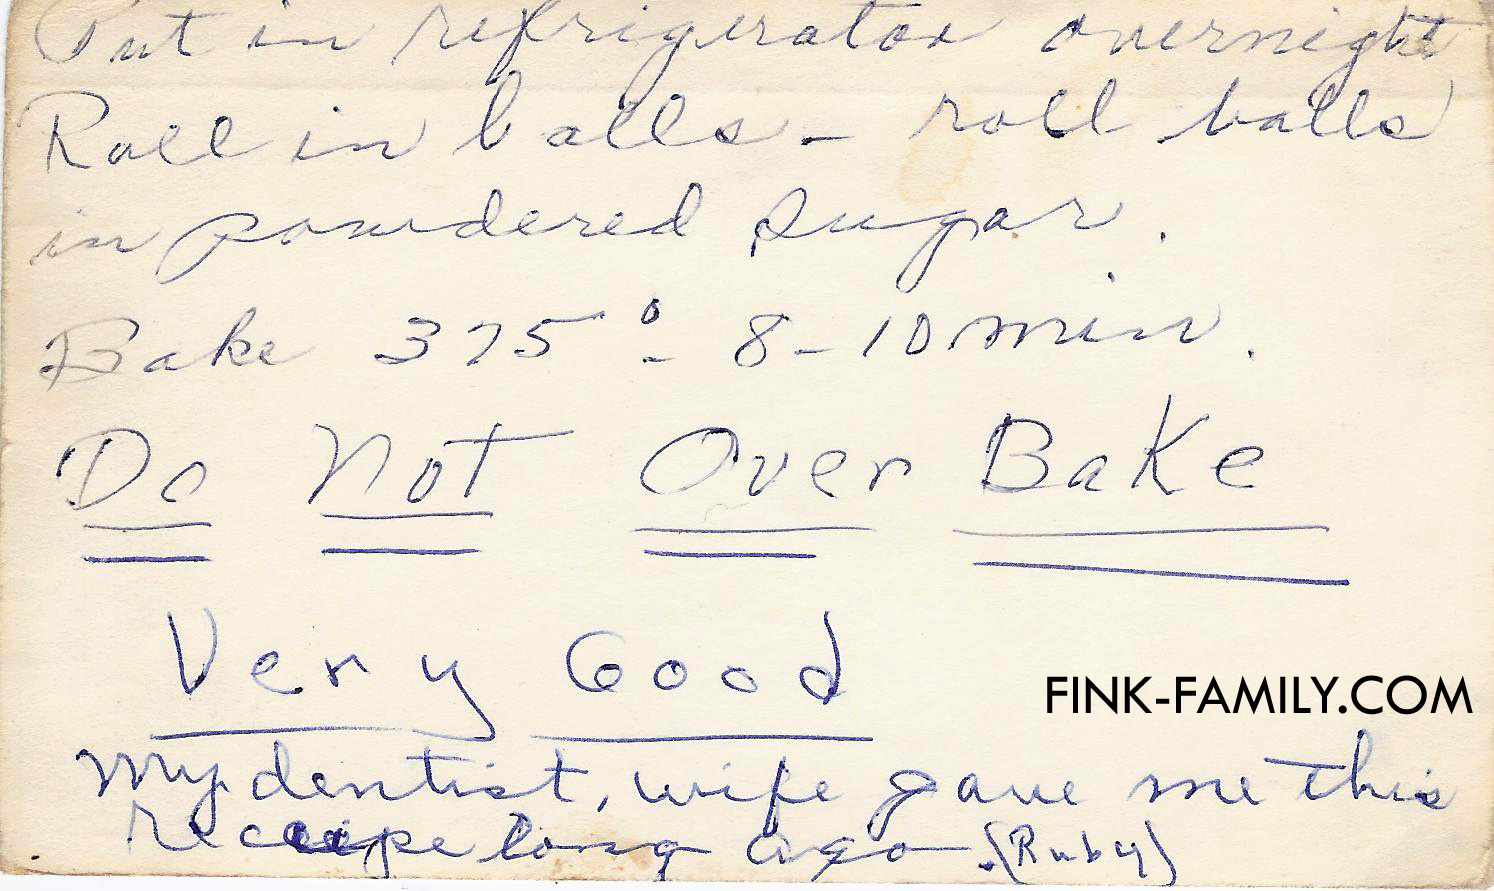 Put in refrigerator overnight
Roll in balls - roll balls
in powdered sugar.
Bake 375° - 8-10 min.
Do Not Over Bake
Very Good
FINK-FAMILY.COM
My dentist, wife gave me this
receipe long ago. (Ruby)